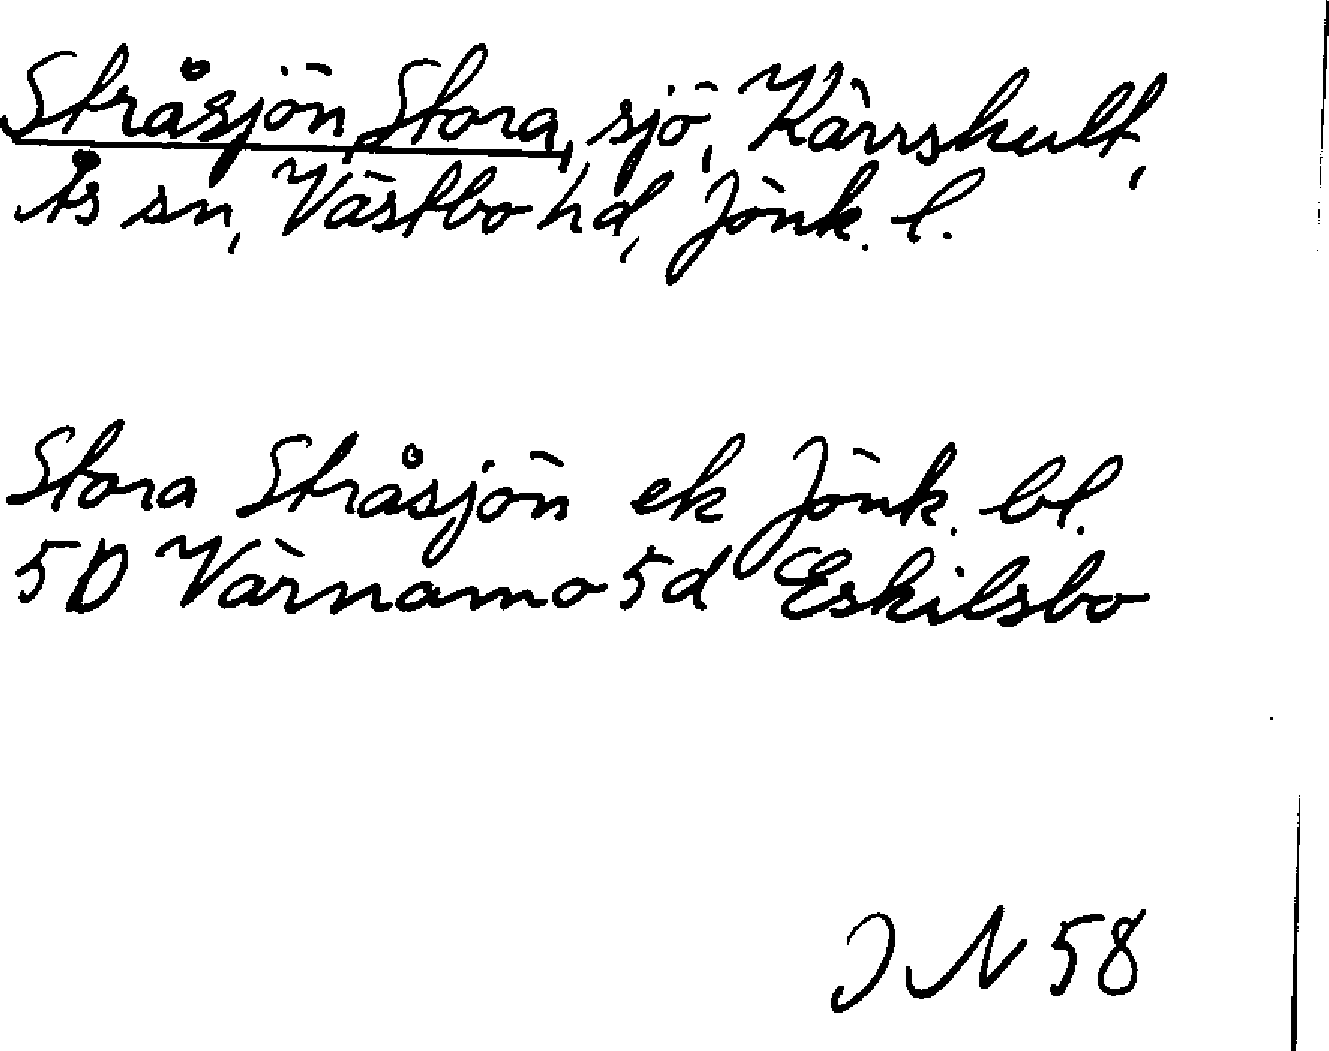 Stråsjön, Stora, sjö, Kärrshult,
Ås sn, Västbo hd, Jönk. l.
Stora Stråsjön ek Jönk. bl.
5D Värnamo 5d Eskilsbo
J N 58